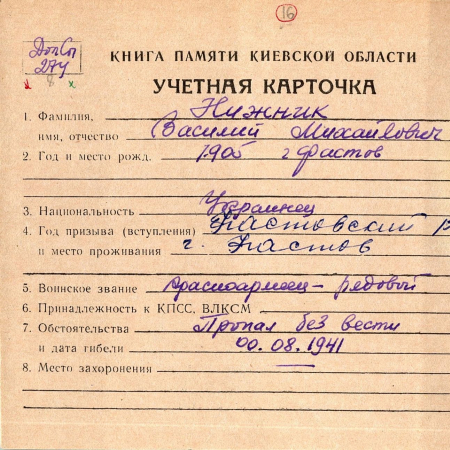 16
ДопСп
274
КНИГА ПАМЯТИ КИЕВСКОЙ ОБЛАСТИ
УЧЕТНАЯ КАРТОЧКА
1. Фамилия, Нижник
имя, отчество Василий Михайлович
2. Год и место рожд. 1905 г Фастов
3. Национальность Украинец
4. Год призыва (вступления) Фастовский р
и место проживания г. Фастов
5. Воинское звание красноармеец - рядовой
6. Принадлежность к КПСС, ВЛКСМ
7. Обстоятельства Пропал без вести
и дата гибели 00.08.1941
8. Место захоронения